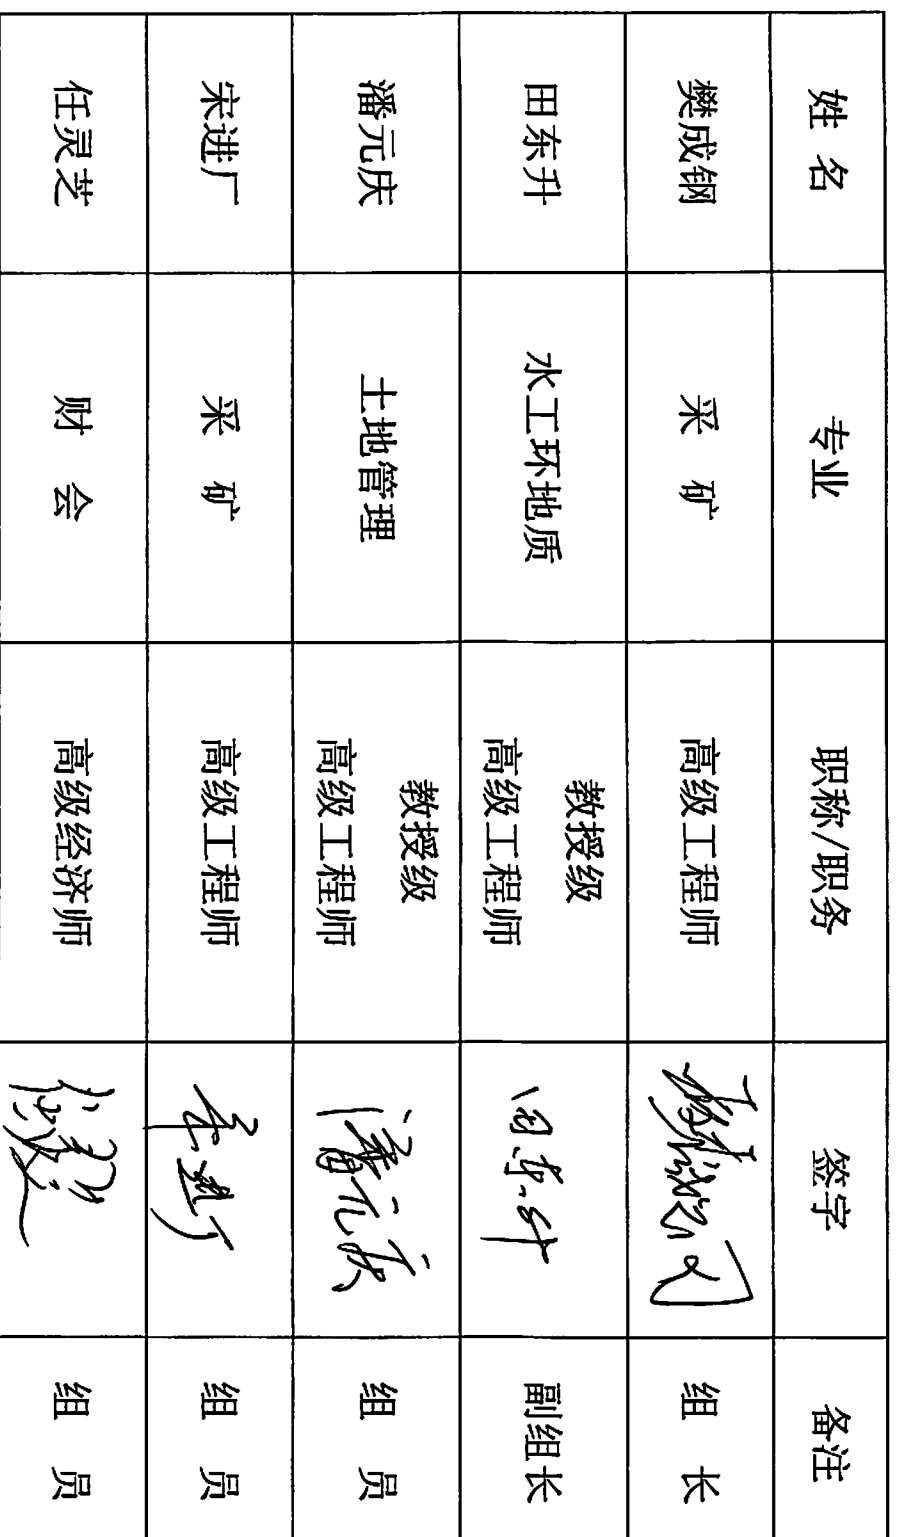 姓 名 专业 职称/职务 签字 备注
樊成钢 采 矿 高级工程师 樊成钢 组 长
田东升 水工环地质 教授级
高级工程师 田东升 副组长
潘元庆 土地管理 教授级
高级工程师 潘元庆 组 员
宋进厂 采 矿 高级工程师 宋进厂 组 员
任灵芝 财 会 高级经济师 任灵芝 组 员